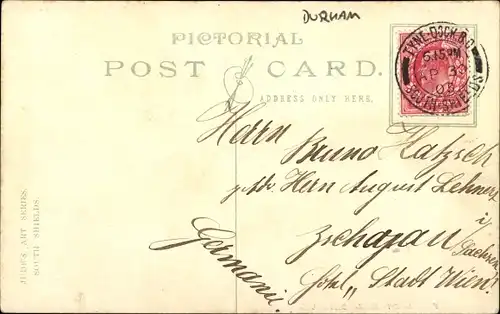 DURHAM
PICTORIAL
POST CARD.
ADDRESS ONLY HERE.
TYNE-DOCK B.O
5.15 PM
AP 30
08
SOUTH-SHIELDS
Herrn
Bruno Hatzsch
p. Adr. Herrn August Lehnert
Zschopau i/
Sachsen
Hotel „Stadt Wien"
Germanie.
JUDE'S ART SERIES.
SOUTH SHIELDS.